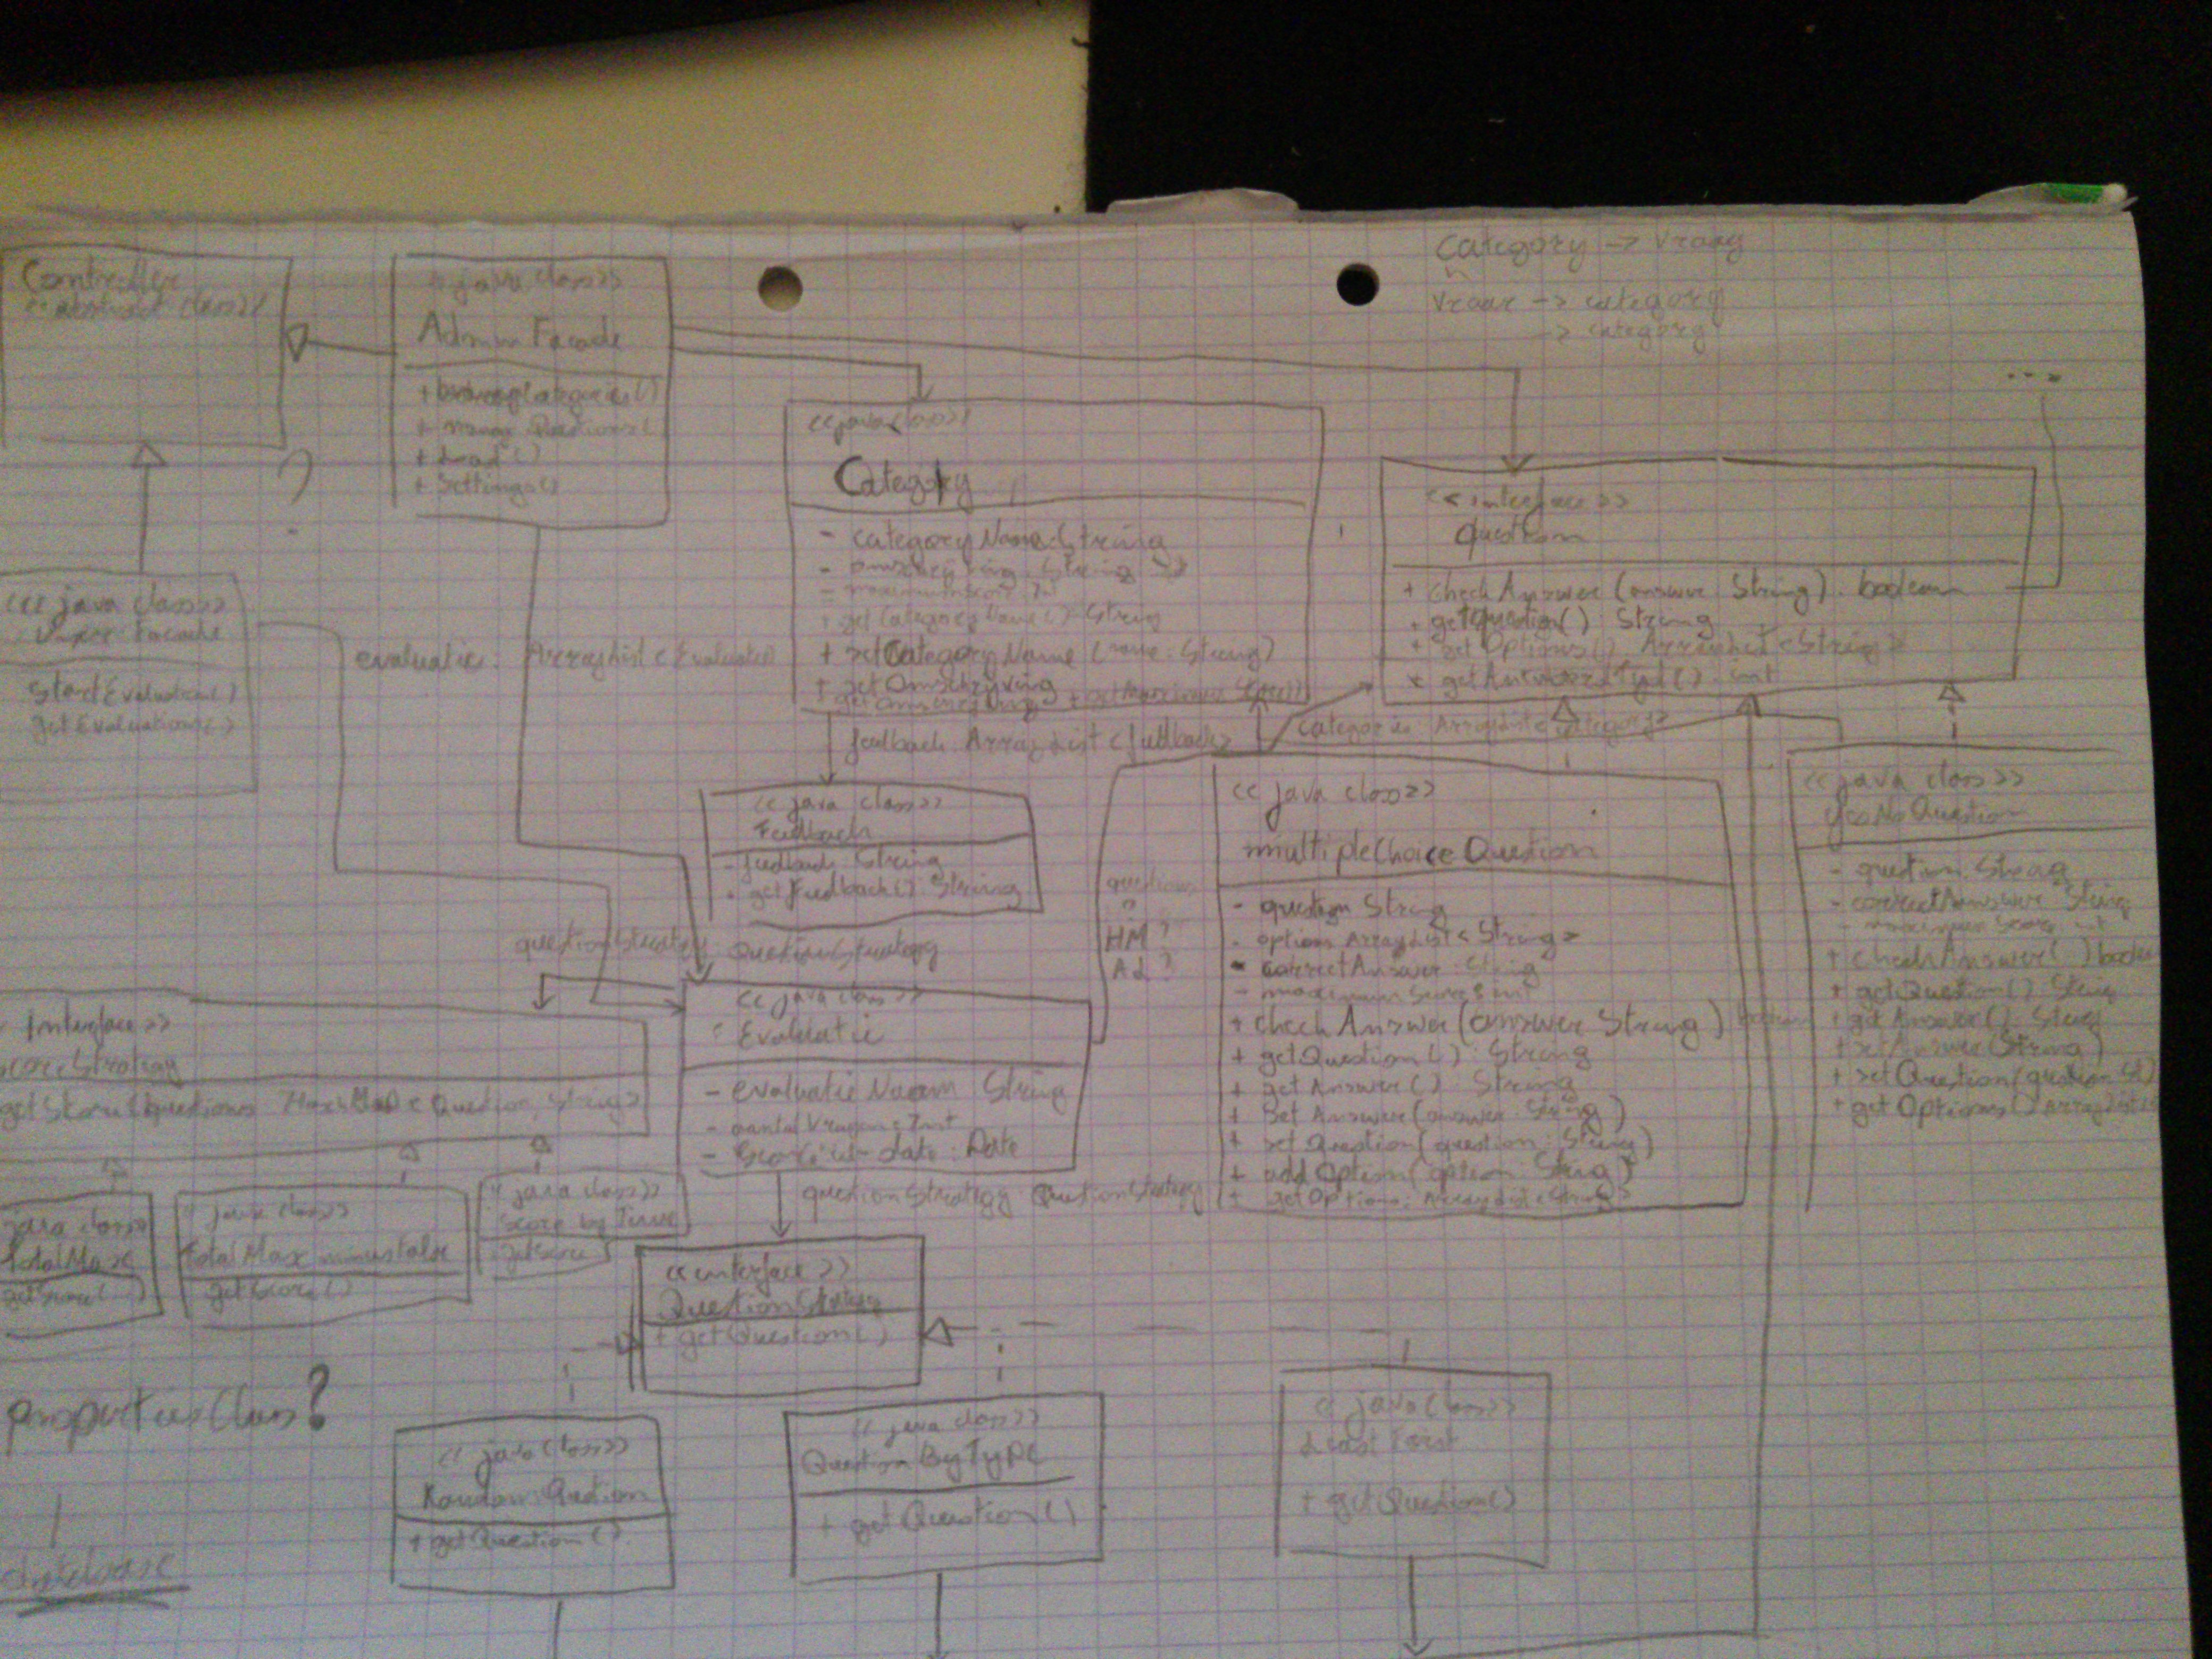 Category -> Vraag
Vraag -> category
-> category
...
Controller
<<abstract class>>
<<java class>>
Admin Facade
+ manageCategories()
+ manageQuestions()
+ Load()
+ Settings()
?
<<java class>>
Category
- categoryName: String
- omschrijving: String
- maximumscore: Int
+ getCategoryName(): String
+ setCategoryName (name: String)
+ getOmschrijving
<<interface>>
Question
+ checkAnswer (answer String): boolean
+ getQuestion(): String
+ getOptions(): ArrayList<String>
int
<<java class>>
Facade
startEvaluation()
getEvaluations()
evaluatie: ArrayList<Evaluatie>
feedback: ArrayList<feedback>
categories ArrayList<Category>
<<java class>>
Feedback
- feedback: String
+ getFeedback(): String
questions
?
HM?
AL?
<<java class>>
multipleChoiceQuestion
- question String
- options ArrayList<String>
- correctAnswer: String
- maximum Score int
+ checkAnswer(answer String)
+ getQuestion(): String
+ getAnswer(): String
+ set Answer(answer: String)
+ setQuestion(question: String)
+ addOption(option: String)
+ getOptions: ArrayList<String>
<<java class>>
YesNoQuestion
- question: String
- correctAnswer String
- maximum Score int
+ checkAnswer()
+ getQuestion(): String
+ getAnswer(): String
+ setAnswer(String)
+ setQuestion(question St)
+ getOptions()
questionStrategy QuestionStrategy
Interface>>
coreStrategy
getScore(questions HashMap<Question, String>
<<java class>>
Evaluatie
- evaluatieNaam String
- aantalVragen: Int
date: Date
questionStrategy QuestionStrategy
java class>>
totalMax
getScore()
<<java class>>
totalMax minusfalse
getScore()
<<java class>>
Score by Time
getScore
<<interface>>
QuestionStrategy
+ getQuestion()
propertiesClass?
database
<<java class>>
RandomQuestion
+ getQuestion()
<<java class>>
QuestionByType
+ getQuestion()
<<java class>>
+ getQuestion()